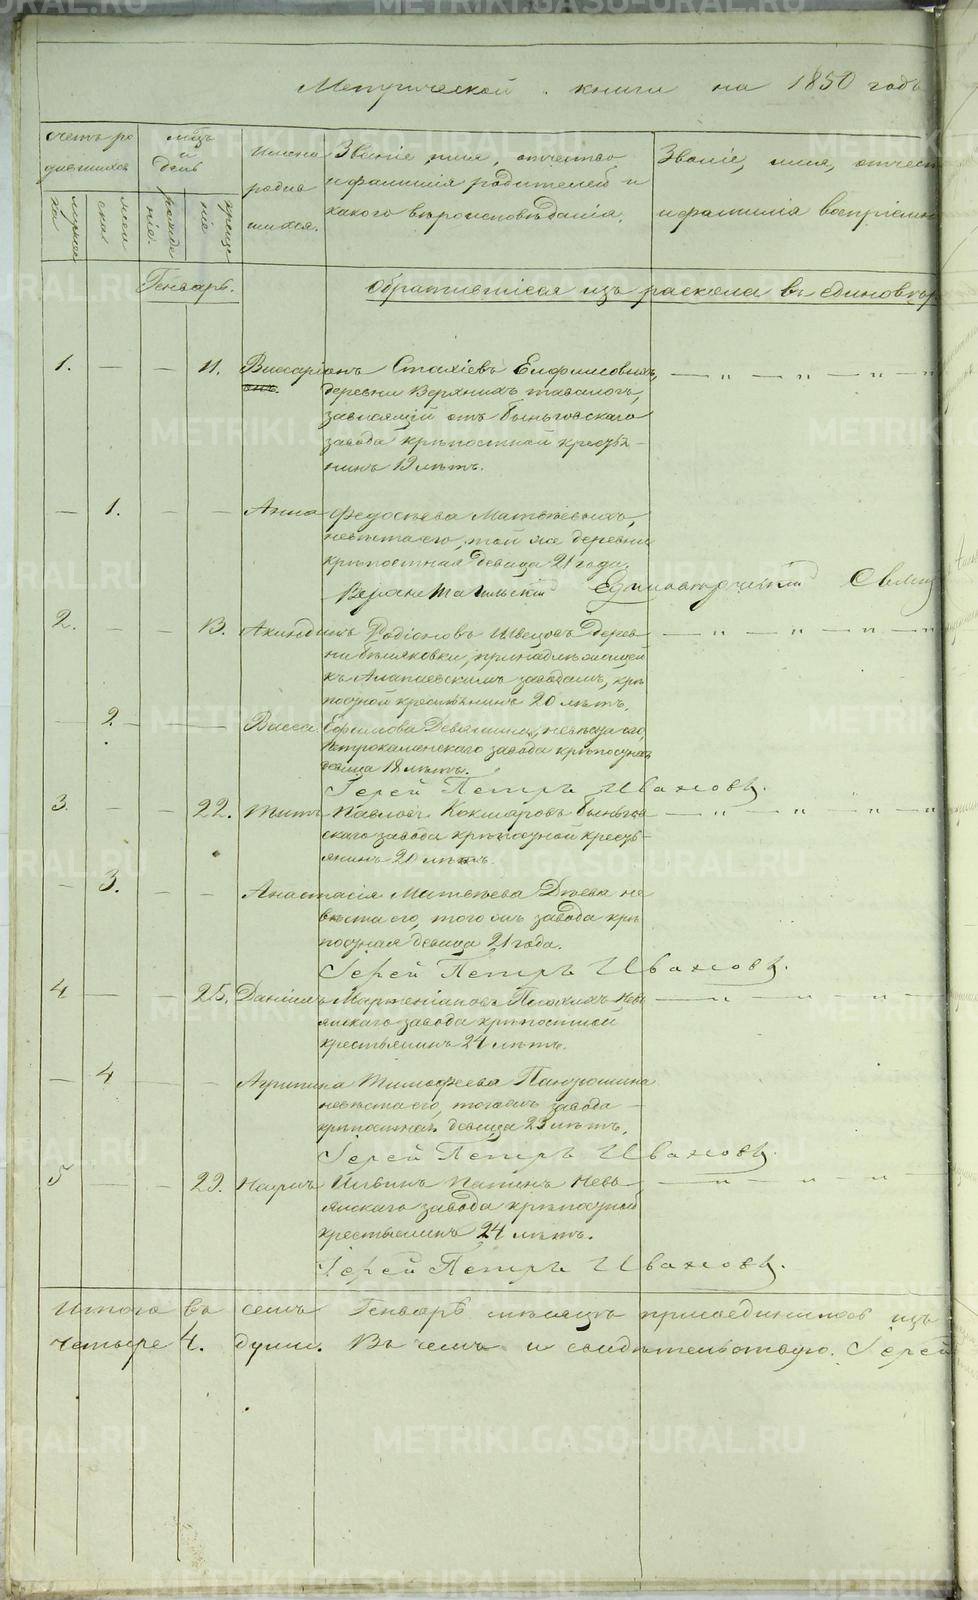 Метрической книги на 1850 годъ
счетъ ро
дившихся
мужес
ка
женс
скихъ
мѣцъ
и
день
рожде
нія.
креще
нія
Имена
родив
шихся.
Званіе имя, отчество
и фамилія родителей и
какого вѣроисповѣданія.
Званіе, имя, отчест
и фамилія воспріемн
Генварь.
Обратившіеся изъ раскола въ единовѣр
1. — — 11. Виссаріонъ Стахіевъ Евфимовыхъ, — „ — „ — „ — „
деревни Верхнихъ тавологъ,
зависящій отъ Быньговскаго
завода крѣпостной крестья-
нинъ 19 лѣтъ.
— 1. — — Анна Федосѣева Матвѣевыхъ,
невѣста его, той же деревни
крѣпостная дѣвица 21 года.
Верхне Тагильскій Единовѣрческій Свящ
2. — — 13. Акиндинъ Родіоновъ Швецовъ дерев — „ — „ — „ — „
ни Бѣляковки, принадлежащей
къ Алапаевскимъ заводамъ, крѣ
постной крестьянинъ 20 лѣтъ.
— 2. — — Васса Ефимова невѣста его,
Петрокаменскаго завода крѣпостная
дѣвица 18 лѣтъ.
Іерей Петръ Ивановъ.
3. — — 22. Титъ Павловъ Кокшаровъ Быньгов — „ — „ — „ — „
скаго завода крѣпостной кресть-
янинъ 20 лѣтъ.
— 3. — — Анастасія Матвѣева Дѣева не
вѣста его, того жъ завода крѣ
постная дѣвица 21 года.
Іерей Петръ Ивановъ.
4 — — 25. Даніилъ Невь — „ — „ — „
янскаго завода крѣпостной
крестьянинъ 24 лѣтъ.
— 4 — — Агрипина Тимофеева Панзюшина
невѣста его, тогожъ завода —
крѣпостная дѣвица 23 лѣтъ.
Іерей Петръ Ивановъ.
5 — — 29. Наумъ Невь- — „ — „ — „
янскаго завода крѣпостной
крестьянинъ 24 лѣтъ.
Іерей Петръ Ивановъ.
Итого въ семъ Генварѣ мѣсяцѣ присоединилось изъ
четыре 4. души. Въ чемъ и свидѣтельствую. Іерей
METRIKI.GASO-URAL.RU